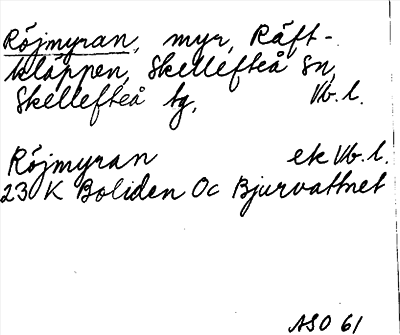 Röjmyran, myr, Räft-
kläppen, Skellefteå sn,
Skellefteå tg, Vb. l.
Röjmyran ek Vb. l.
23 K Boliden Oc Bjurvattnet
ASO 61